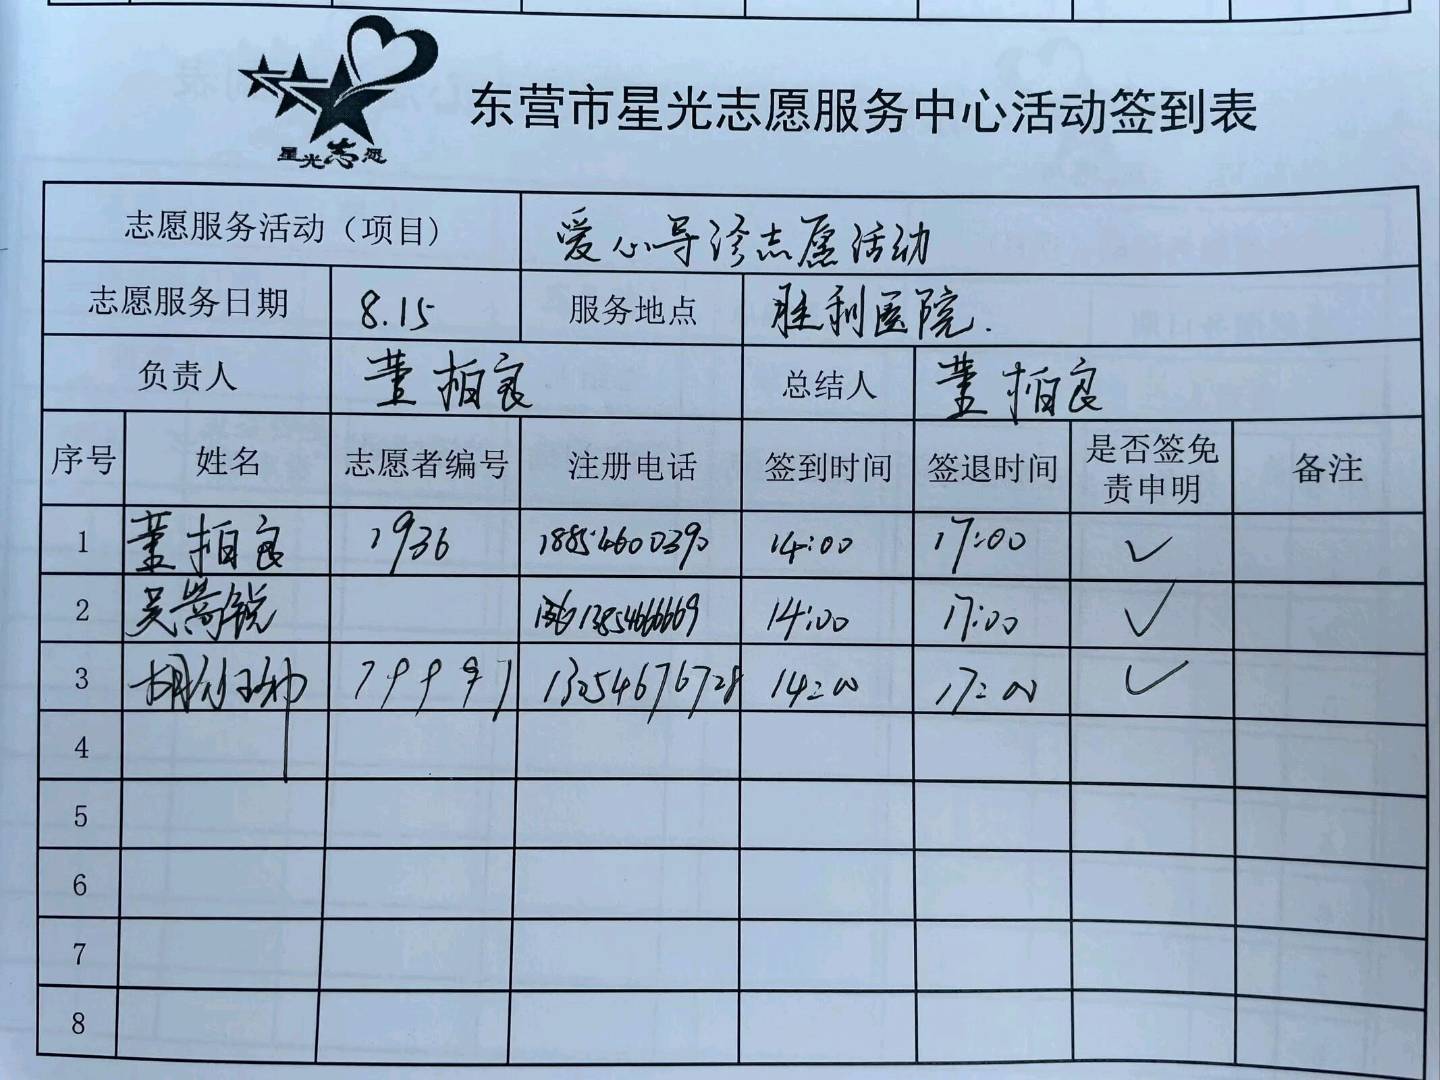 星光志愿
东营市星光志愿服务中心活动签到表
志愿服务活动（项目） 爱心导诊志愿活动
志愿服务日期 8.15 服务地点 胜利医院.
负责人 董柏良 总结人 董柏良
序号 姓名 志愿者编号 注册电话 签到时间 签退时间 是否签免责申明 备注
1 董柏良 1936 18854600390 14:00 17:00 ✓
2 吴嵩锐 13854666669 14:00 17:00 ✓
3 14:00 17:00 ✓
4
5
6
7
8